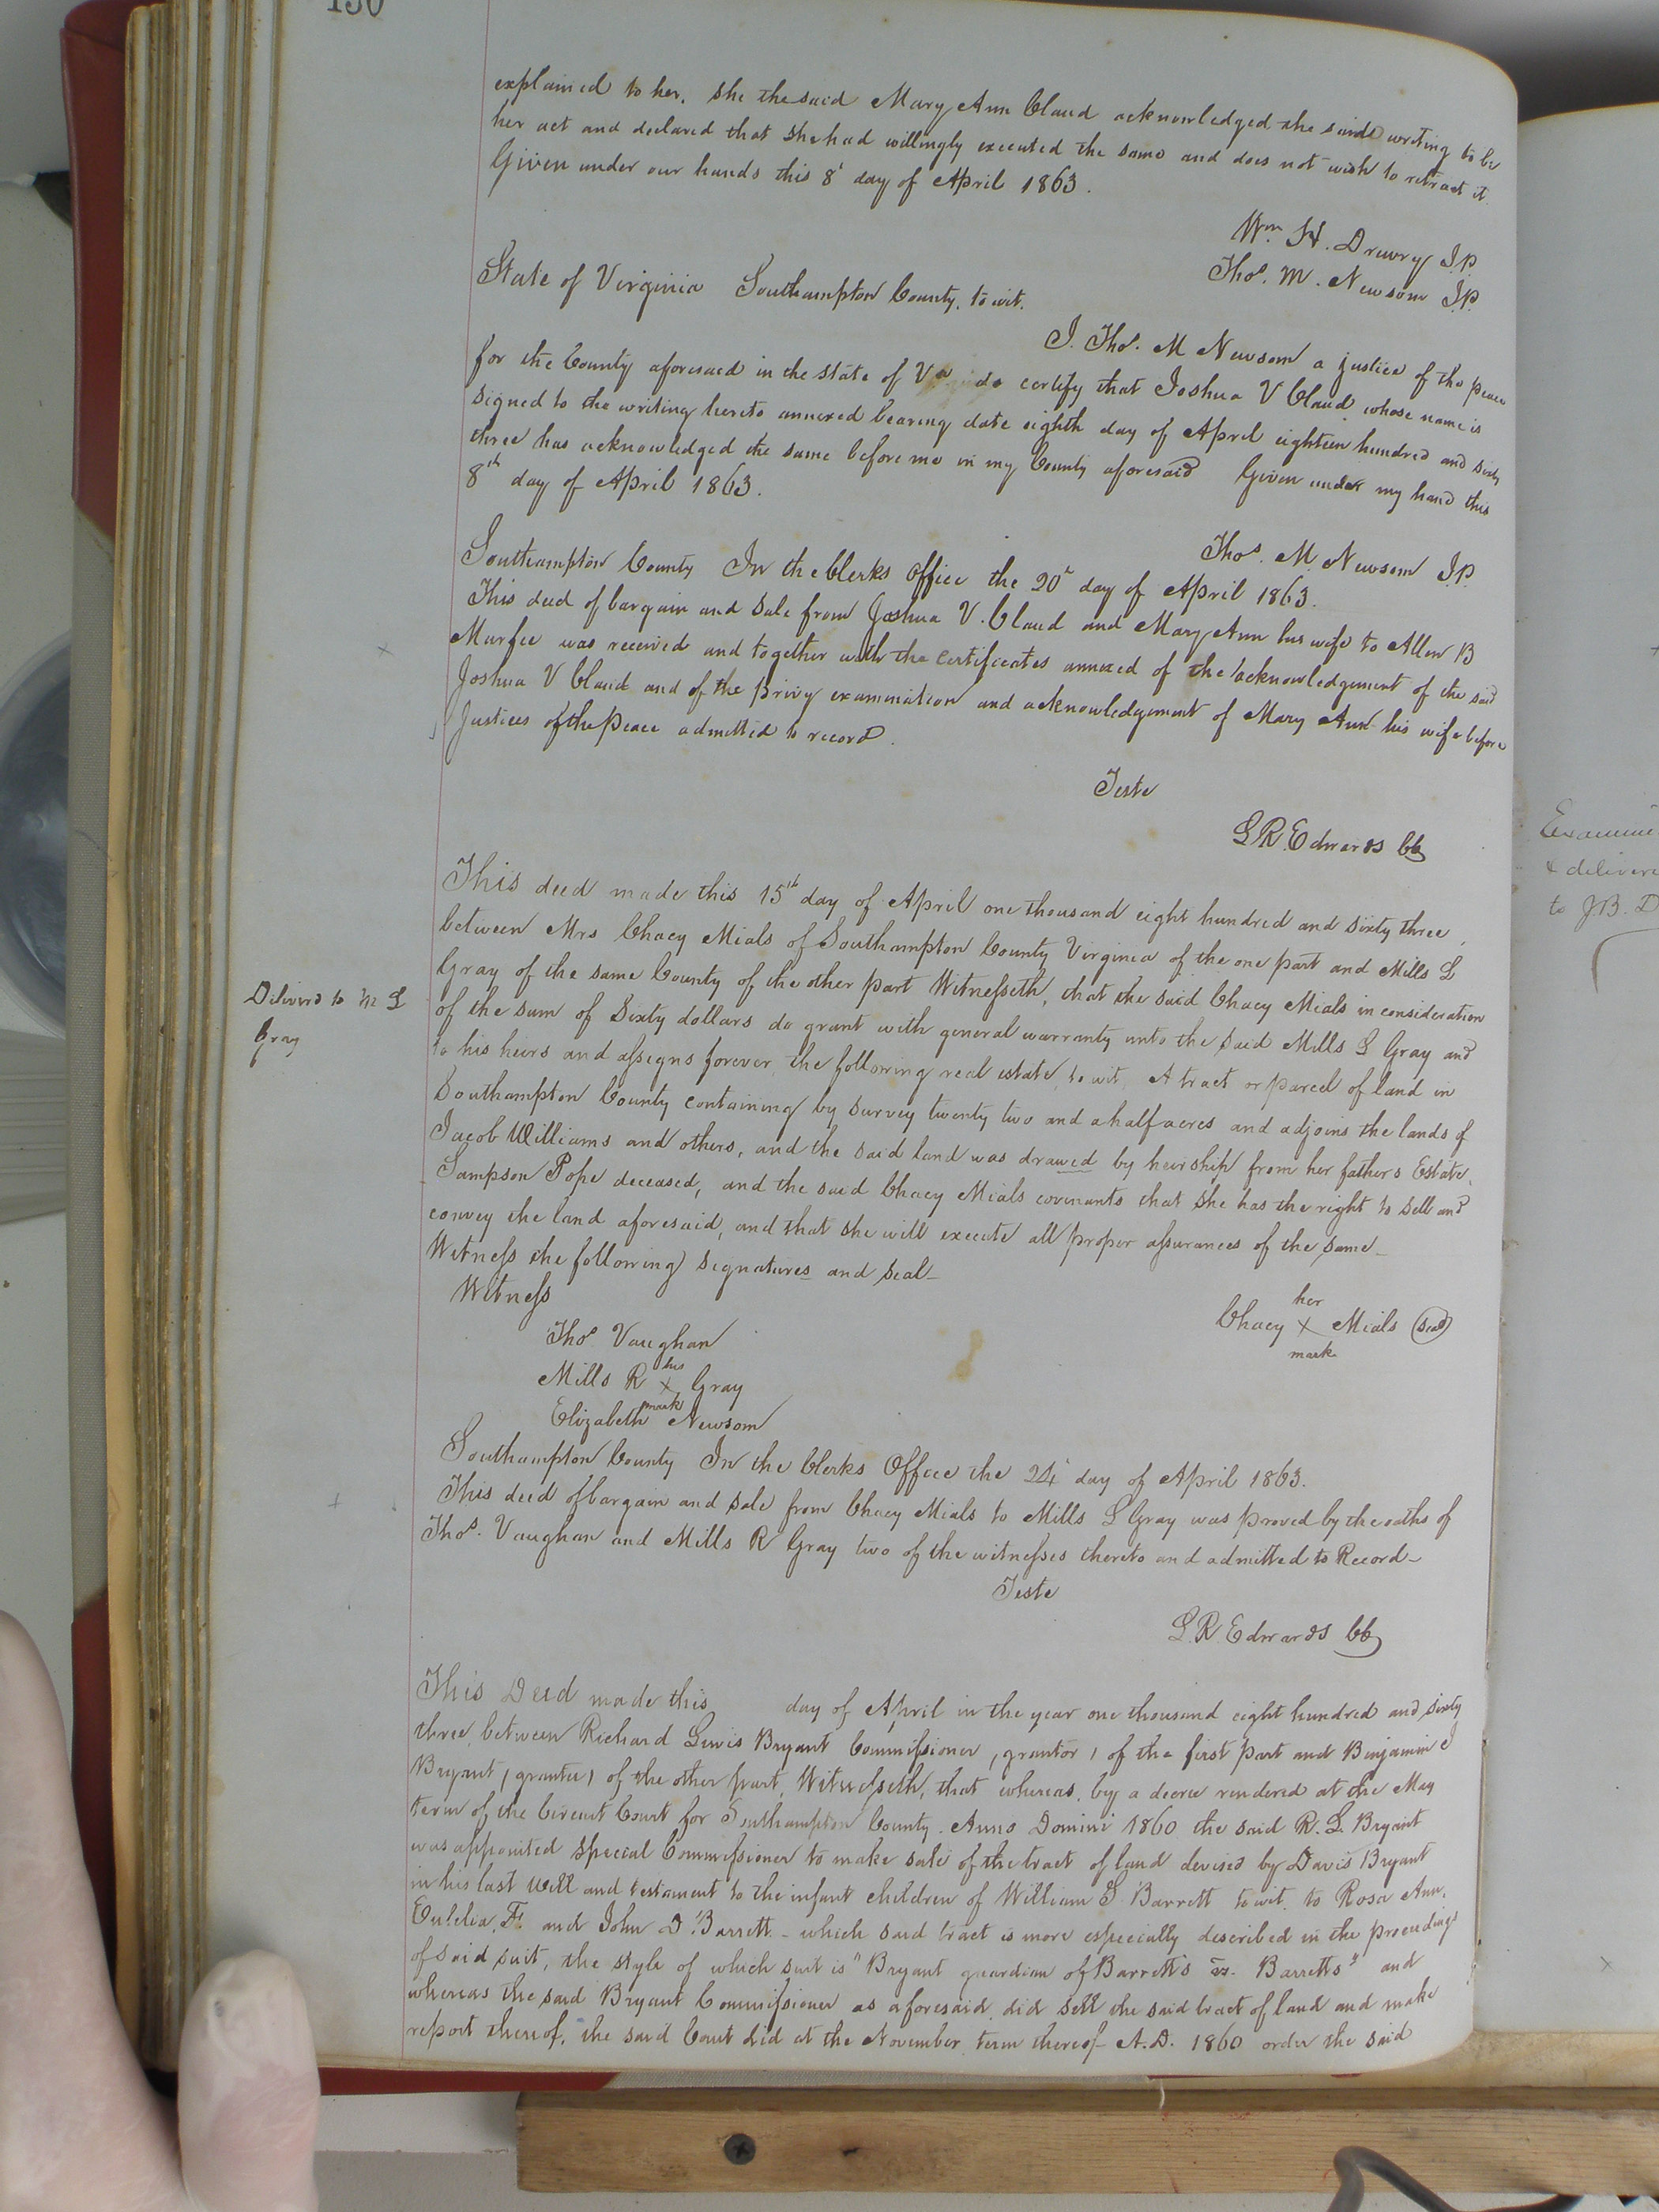 150
explained to her, she the said Mary Ann Claud acknowledged the said writing to be
her act and declared that she had willingly executed the same and does not wish to retract it.
Given under our hands this 8' day of April 1863.
Wm. H. Drewry J.P.
Thos. M. Newsom J.P.
State of Virginia Southampton County, to wit.
I. Thos. M Newsom a justice of the peace
for the County aforesaid in the state of Va do certify that Joshua V Claud whose name is
signed to the writing hereto annexed bearing date eighth day of April eighteen hundred and sixty
three has acknowledged the same before me in my County aforesaid Given under my hand this
8th day of April 1863.
Thos. M. Newsom J.P.
Southampton County In the Clerks Office the 20' day of April 1863.
This deed of bargain and sale from Joshua V. Claud and Mary Ann his wife to Allen B
Murfee was received and together with the certificates annexed of the acknowledgement of the said
Joshua V Claud and of the privy examination and acknowledgement of Mary Ann his wife before
Justices of the peace admitted to record.
Teste
L R. Edwards CC
Examine
& delivere
to J.B. D
This deed made this 15th day of April one thousand eight hundred and sixty three,
between Mrs Chacy Mials of Southampton County Virginia of the one part and Mills L
Gray of the same County of the other part Witnesseth, that the said Chacy Mials in consideration
Deliverd to M L
Gray
of the sum of Sixty dollars do grant with general warranty unto the said Mills L Gray and
to his heirs and assigns forever, the following real estate, to wit, A tract or parcel of land in
Southampton County containing by survey twenty two and a half acres and adjoins the lands of
Jacob Williams and others, and the said land was drawed by heirship from her fathers Estate,
Sampson Pope deceased, and the said Chacy Mials covenants that she has the right to sell and
convey the land aforesaid, and that she will execute all proper assurances of the same_
Witness the following signatures and seal_
Witness
her
Chacy X Mials (Seal)
mark
Thos Vaughan
his
Mills R X Gray
mark
Elizabeth Newsom
Southampton County In the Clerks Office the 24' day of April 1863.
This deed of bargain and sale from Chacy Mials to Mills L Gray was proved by the oaths of
Thos. Vaughan and Mills R Gray two of the witnesses thereto and admitted to Record_
Teste
L. R. Edwards CC
This Deed made this day of April in the year one thousand eight hundred and sixty
three, between Richard Lewis Bryant Commissioner, (grantor) of the first part and Benjamin J
Bryant, (grantee) of the other part, Witnesseth, that whereas, by a decree rendered at the May
term of the Circuit Court for Southampton County. Anno Domini 1860 the said R. L. Bryant
was appointed special Commissioner to make sale of the tract of land devised by Davis Bryant
in his last will and testament to the infant children of William S Barrett to wit. to Rosa Ann,
F. and John D Barrett - which said tract is more especially described in the proceedings
of said suit, the style of which suit is "Bryant guardian of Barretts vs. Barretts" and
whereas the said Bryant Commissioner as aforesaid did sell the said tract of land and make
report thereof, the said Court did at the November term thereof A.D. 1860 order the said